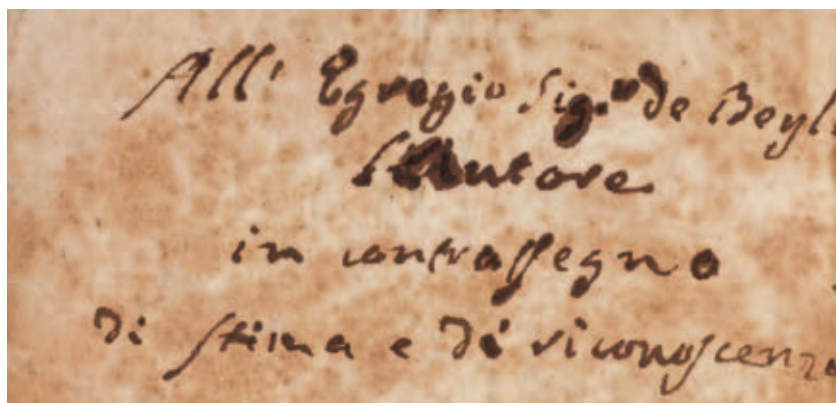 All' Egregio Sig.r de Beyl
L'Autore
in contrassegno
di stima e di riconoscenza